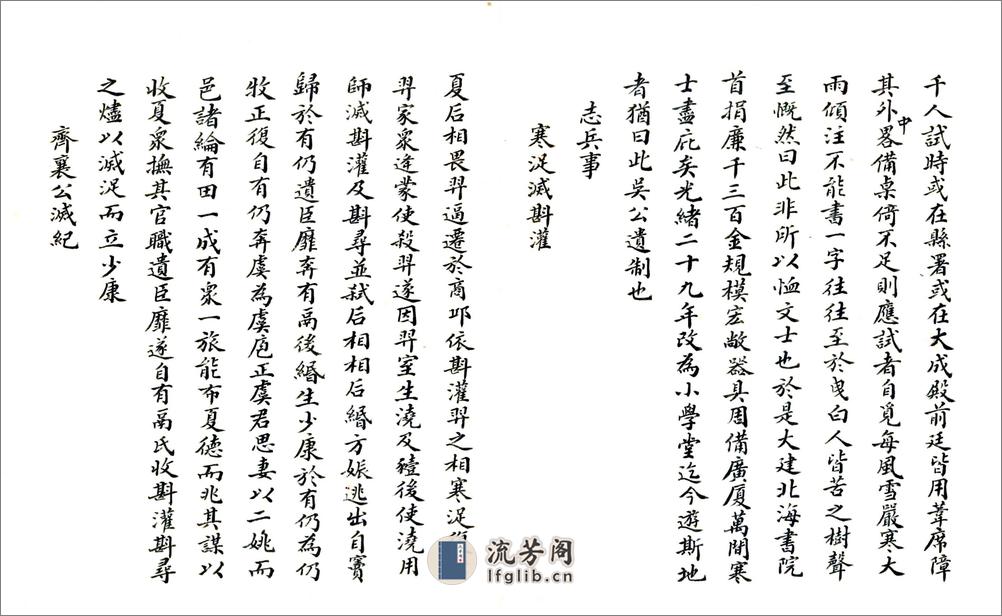 千人試時或在縣署或在大成殿前廷皆用葦席障
其外中畧備桌倚不足則應試者自覓每風雪嚴寒大
雨傾注不能書一字往往至於曳白人皆苦之樹聲
至慨然曰此非所以恤文士也於是大建北海書院
首捐廉千三百金規模宏敞器具周備廣厦萬間寒
士盡庇矣光緒二十九年改為小學堂迄今遊斯地
者猶曰此吳公遺制也
志兵事
寒浞滅斟灌
夏后相畏羿逼遷於商邱依斟灌羿之相寒浞
羿家衆逄蒙使殺羿遂因羿室生澆及豷後使澆用
師滅斟灌及斟尋並弒后相相后緡方娠逃出自竇
歸於有仍遺臣靡奔有鬲後緡生少康於有仍為仍
牧正復自有仍奔虞為虞庖正虞君思妻以二姚而
邑諸綸有田一成有衆一旅能布夏德而兆其謀以
收夏衆撫其官職遺臣靡遂自有鬲氏收斟灌斟尋
之燼以滅浞而立少康
齊襄公滅紀
流芳阁
lfglib.cn